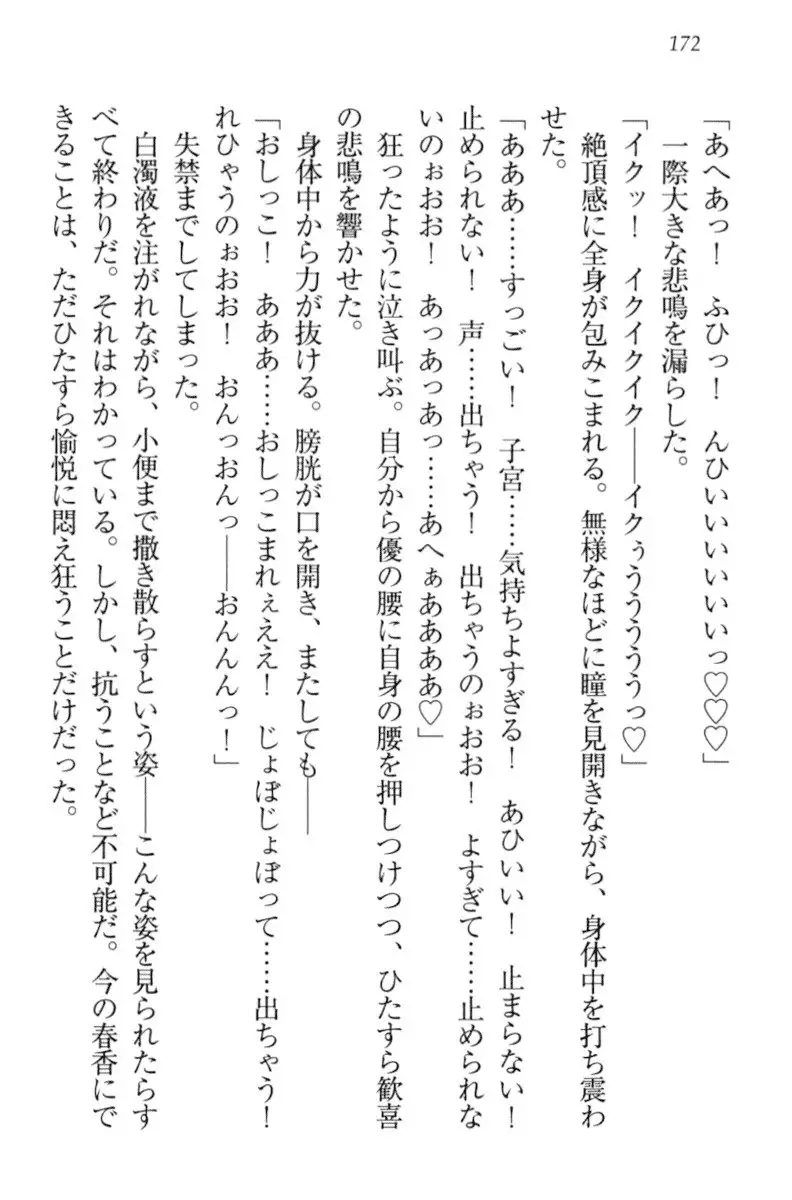 172
「あへあっ!　ふひっ!　んひいいいいいいっ♡♡♡」
一際大きな悲鳴を漏らした。
「イクッ!　イクイクイク――イクぅうううううっ♡」
絶頂感に全身が包みこまれる。無様なほどに瞳を見開きながら、身体中を打ち震わ
せた。
「あああ……すっごい!　子宮……気持ちよすぎる!　あひいい!　止まらない!
止められない!　声……出ちゃう!　出ちゃうのぉおお!　よすぎて……止められな
いのぉおお!　あっあっあっ……あへぁああああ♡」
狂ったように泣き叫ぶ。自分から優の腰に自身の腰を押しつけつつ、ひたすら歓喜
の悲鳴を響かせた。
身体中から力が抜ける。膀胱が口を開き、またしても――
「おしっこ!　あああ……おしっこまれぇええ!　じょぼじょぼって……出ちゃう!
れひゃうのぉおお!　おんっおんっ――おんんんっ!」
失禁までしてしまった。
白濁液を注がれながら、小便まで撒き散らすという姿――こんな姿を見られたらす
べて終わりだ。それはわかっている。しかし、抗うことなど不可能だ。今の春香にで
きることは、ただひたすら愉悦に悶え狂うことだけだった。